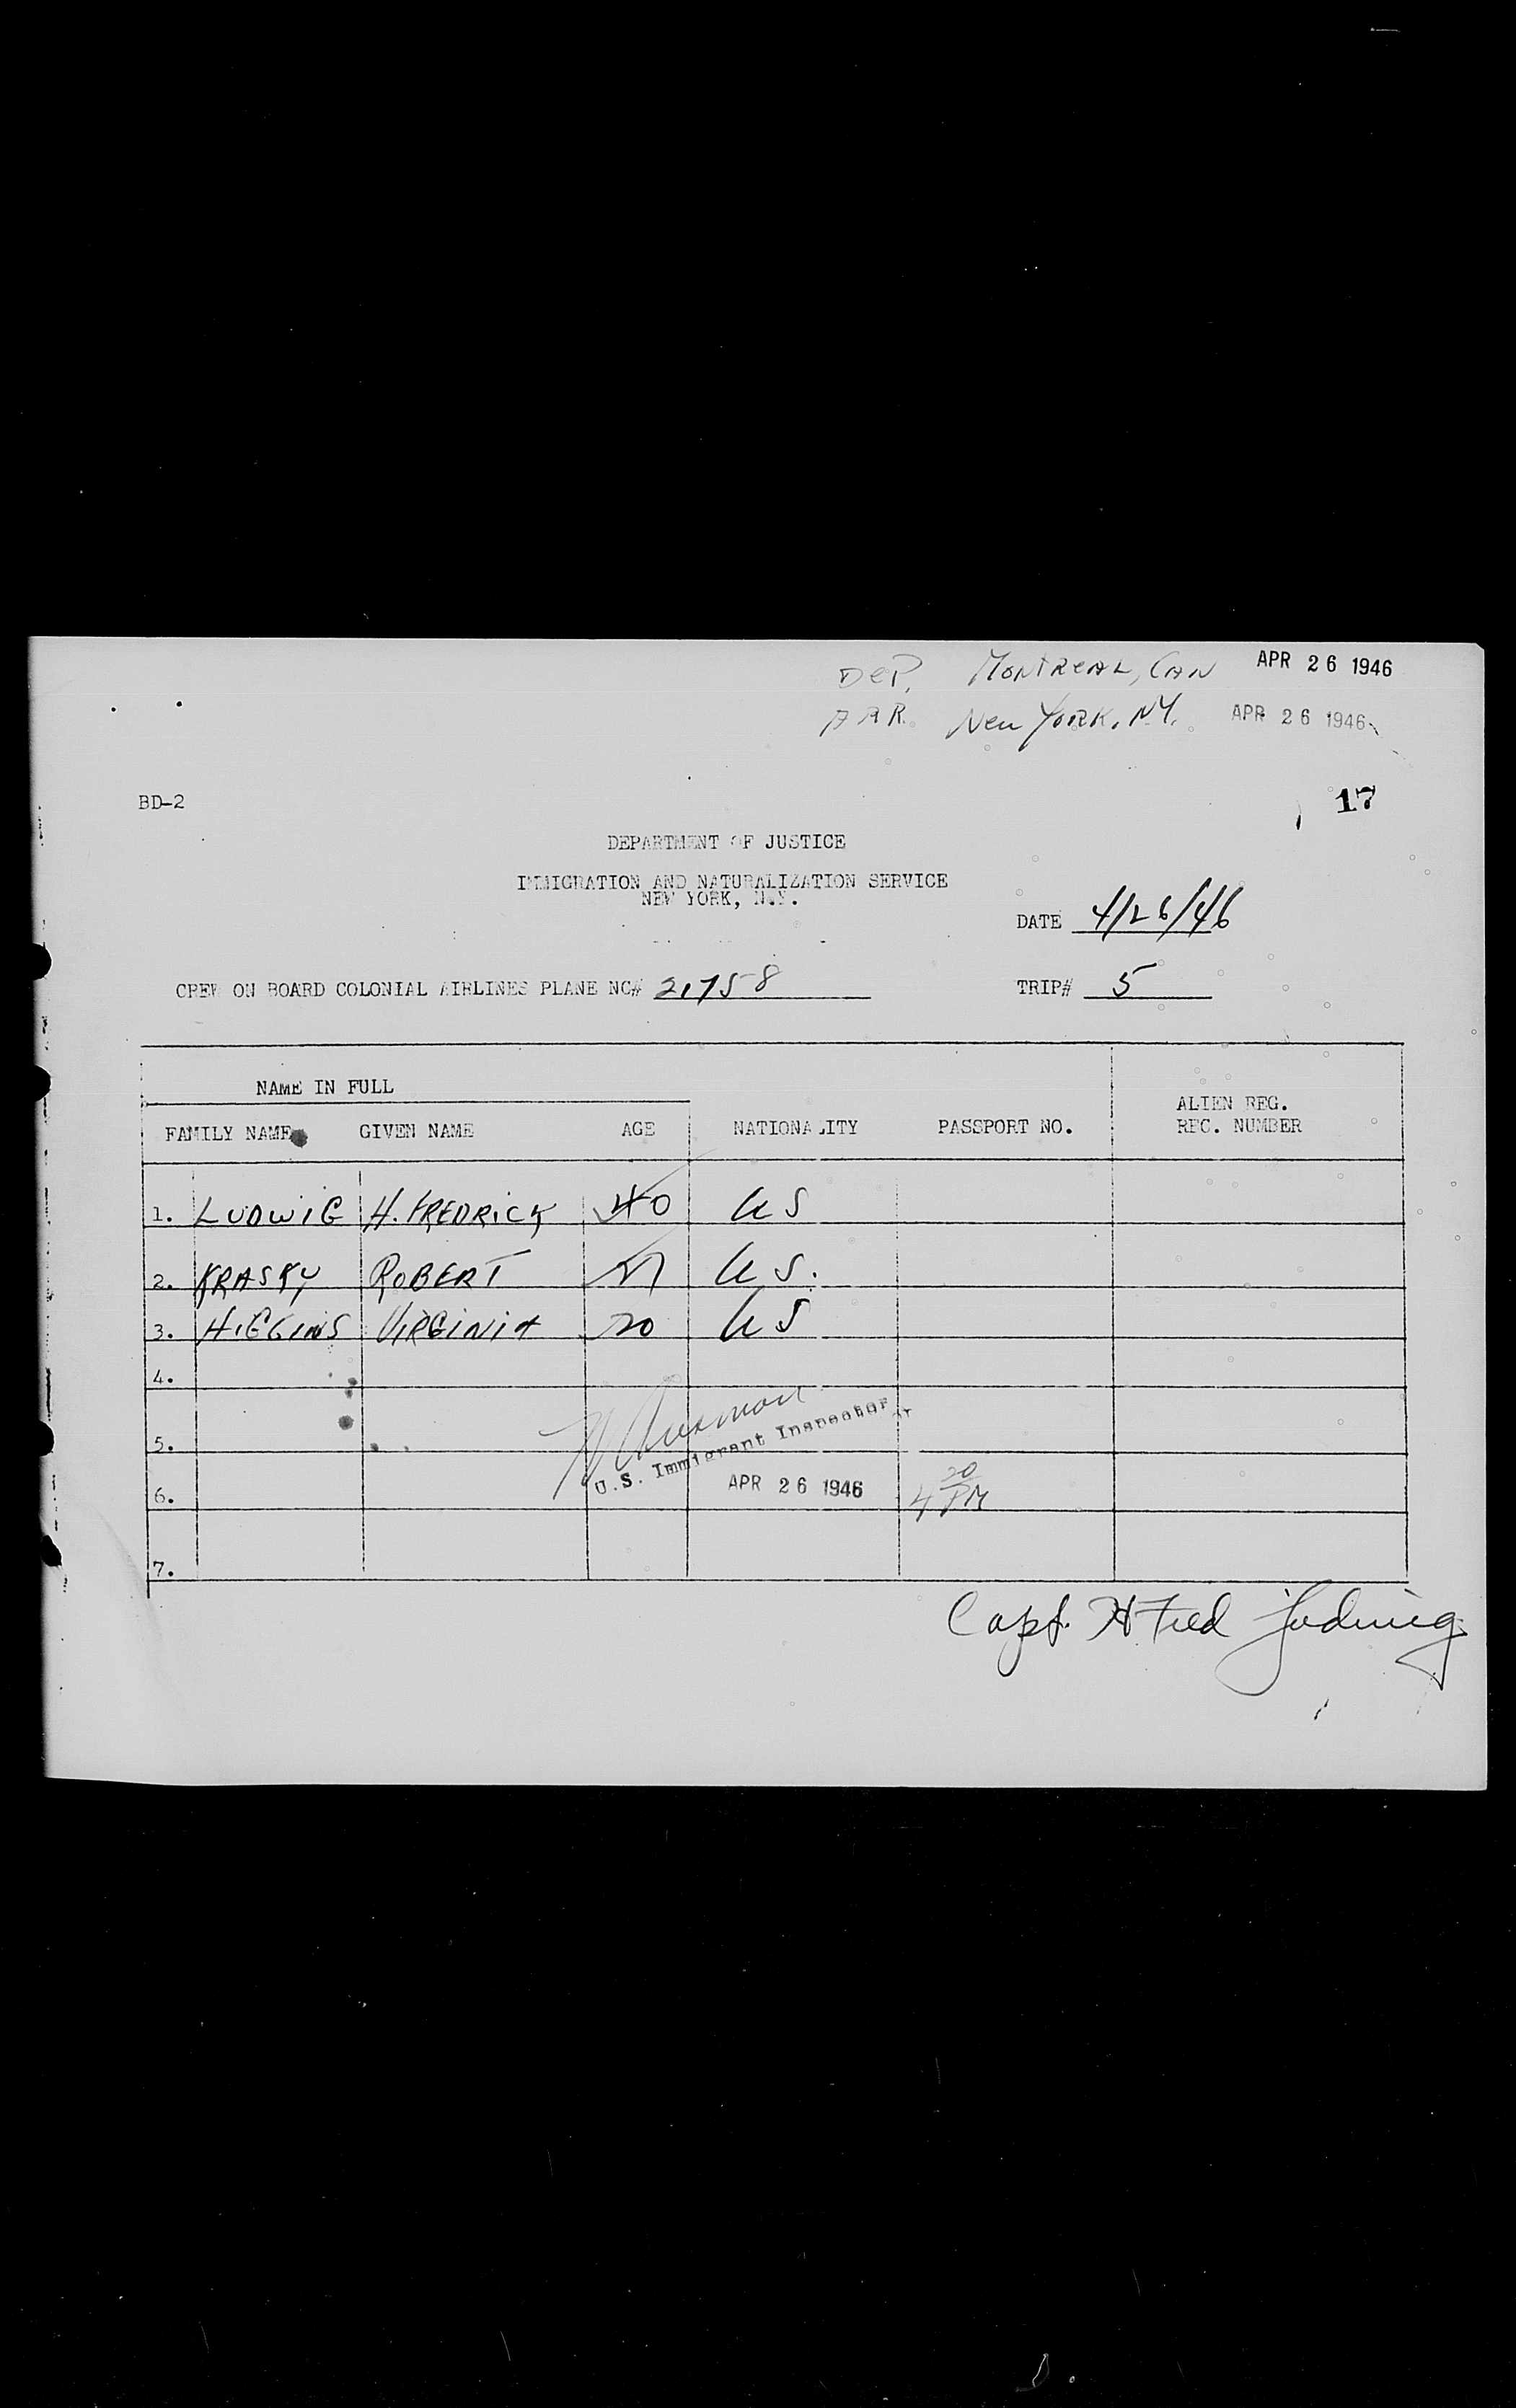 DEP. MONTREAL, CAN APR 26 1946
ARR. New York, NY. APR 26 1946
BD-2
17
DEPARTMENT OF JUSTICE
IMMIGRATION AND NATURALIZATION SERVICE
NEW YORK, N.Y.
DATE 4/26/46
CREW ON BOARD COLONIAL AIRLINES PLANE NC# 21758
TRIP# 5
NAME IN FULL
FAMILY NAME GIVEN NAME AGE NATIONALITY PASSPORT NO. ALIEN REG. REC. NUMBER
1. LUDWIG H. FREDRICK 40 US
2. KRASKY ROBERT US.
3. HIGGINS VIRGINIA 20 US
4.
5.
U.S. Immigrant Inspector
6. APR 26 1946 4 20 PM
7.
Capt. H Fred Ludwig